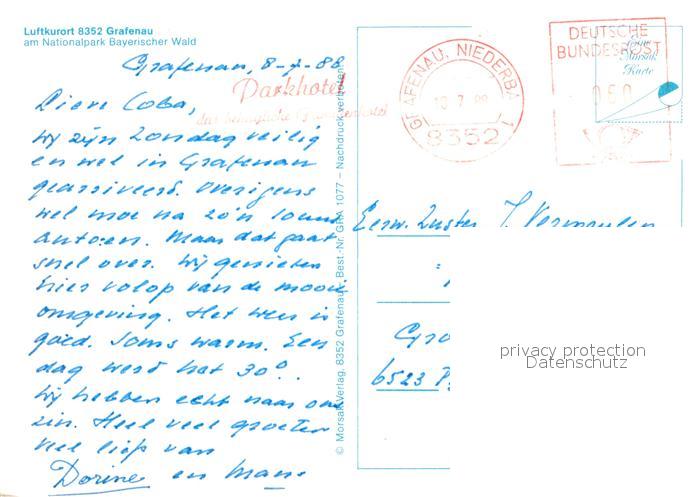 Luftkurort 8352 Grafenau
am Nationalpark Bayerischer Wald
Grafenau, 8-7-88
Parkhotel
das behagliche Ferienhotel
Lieve Coba,
Wij zijn Zondag veilig
en wel in Grafenau
gearriveerd. Overigens
wel moe na zo'n 10 uur
autoën. Maar dat gaat
snel over. Wij genieten
hier volop van de mooie
omgeving. Het weer is
goed. Soms warm. Een
dag werd het 30°.
Wij hebben echt naar ons
zin. Heel veel groeten
veel liefs van
Dorine en Mans
© Morsak Verlag, 8352 Grafenau Best.-Nr. GRA 1077 – Nachdruck verboten
GRAFENAU, NIEDERBAY 1
10.7.88
8352
DEUTSCHE
BUNDESPOST
060
Morsak
Karte
Eerw. Zuster J. Vermeulen
6523
privacy protection
Datenschutz